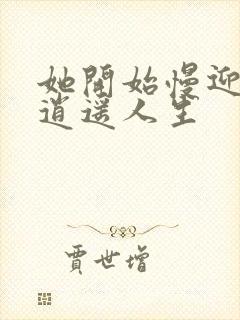 她開始慢迎
逍遥人生
賈世增